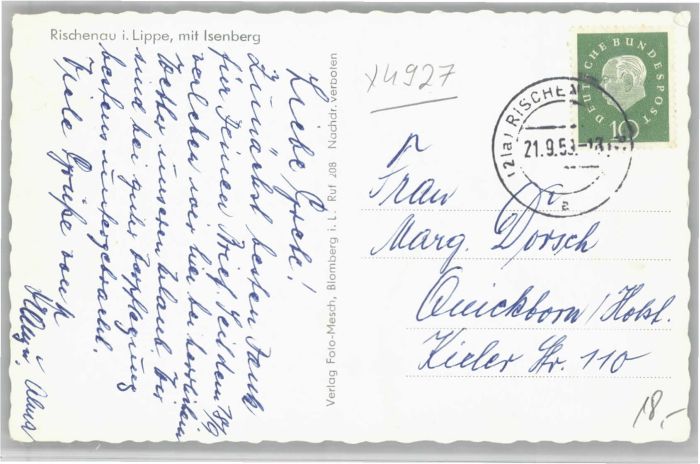 Rischenau i. Lippe, mit Isenberg
Liebe Grete!
Zunächst besten Dank
für Deinen Brief. Seit dem 18/9
verleben wir hier bei herrlichem
Wetter unseren Urlaub. Wir
sind bei guter Verpflegung
bestens untergebracht.
Viele Grüße von
Alma
Verlag Foto-Mesch, Blomberg i. L. · Ruf 208 Nachdr. verboten
x4927
DEUTSCHE BUNDESPOST
10
(21a) RISCHENAU
21.9.59.-
a
Frau Dr
Marg. Dorsch
Quickborn/Holst.
Kieler Str. 110
18,-